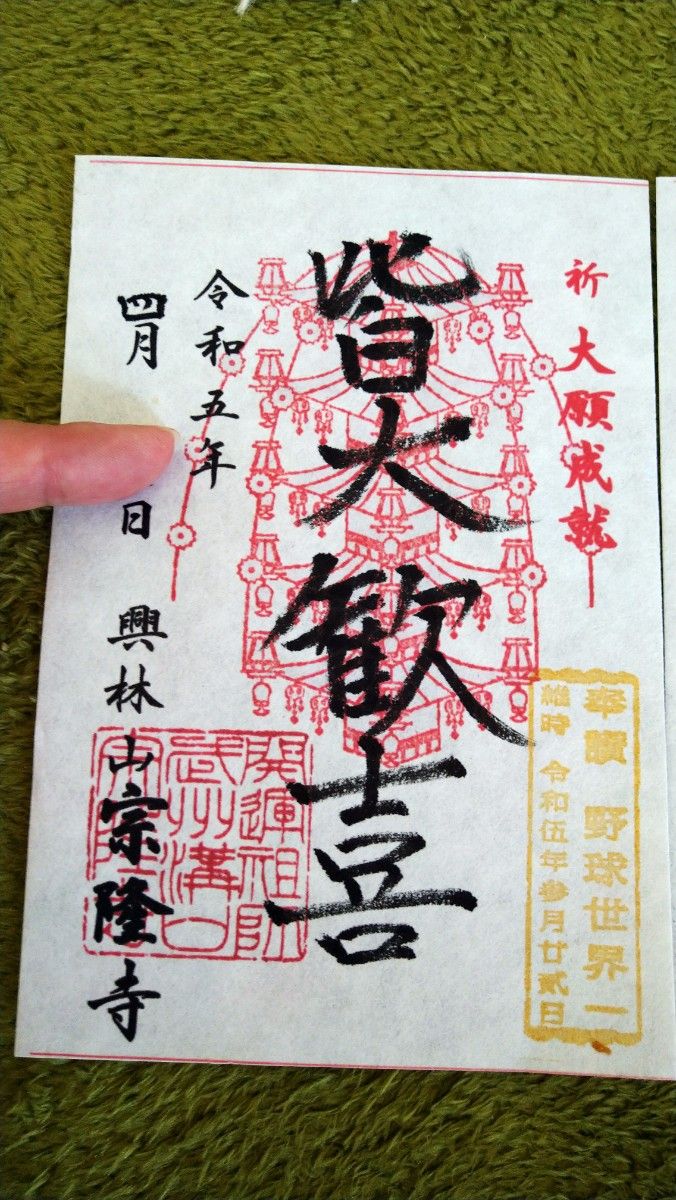 祈 大願成就
皆大歓喜
奉 野球世界一
維時 令和伍年参月廿貳日
開運祖師
武州溝口
令和五年
四月 日 興林山宗隆寺